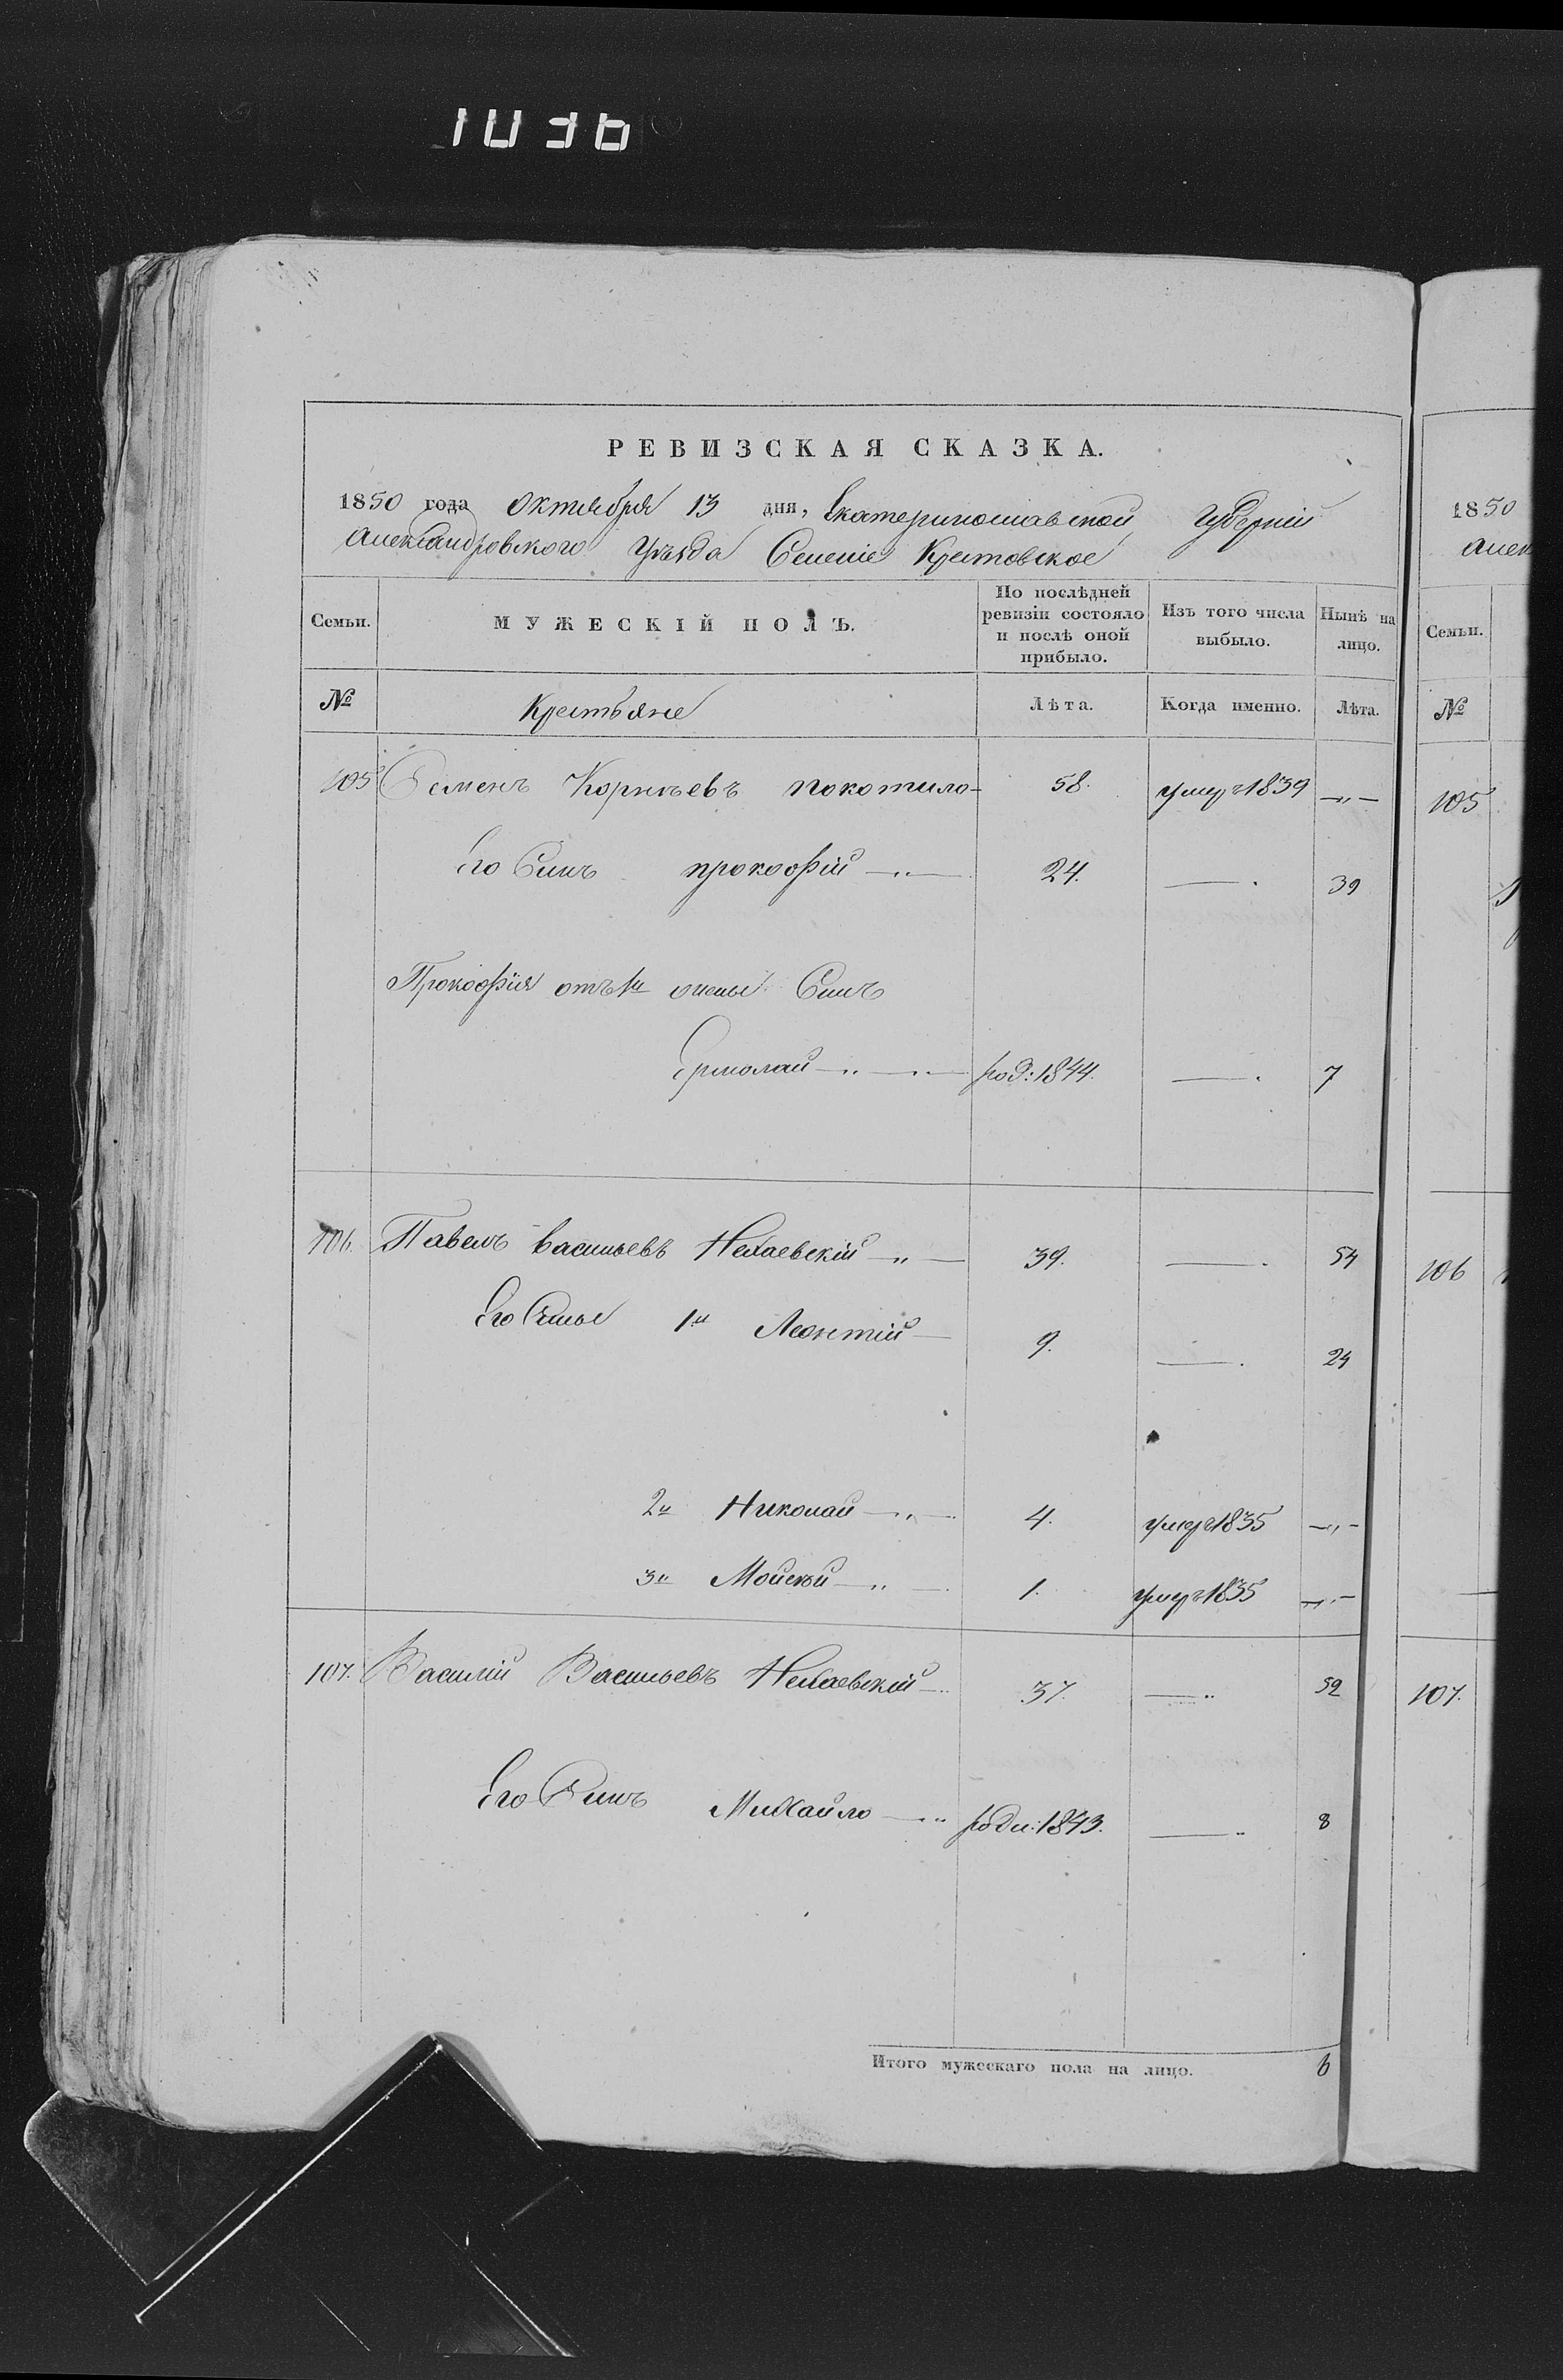 1036
РЕВИЗСКАЯ СКАЗКА.
1850 года Октября 13 дня, Екатеринославской Губерніи
Александровского Уѣзда Селеніе Крестовское
Семьи.
МУЖЕСКІЙ ПОЛЪ.
По послѣдней ревизіи состояло и послѣ оной прибыло.
Изъ того числа выбыло.
Нынѣ на лицо.
№ Крестьяне Лѣта. Когда именно. Лѣта.
105 Семенъ Корнѣевъ Покотило 58. умеръ 1839 —„—
Его Сынъ прокофій —„— 24. — 39
Прокофія отъ 1й жены Сынъ
Ермолай —„— —„— род: 1844. — 7
106. Павелъ Васильевъ Нехаевскій „— 39. — 54
Его Сыны 1й Леонтій — 9. — 24
2й Николай —„— 4. умеръ 1835 —„—
3й Мойсей —„— 1. умеръ 1835 —„—
107. Василій Васильевъ Нехаевскій —„ 37. —„ 52
Его Сынъ Михайло —„ роди: 1843. —„ 8
Итого мужескаго пола на лицо. 6
1850
Алек
Семьи.
№
105
106
107.